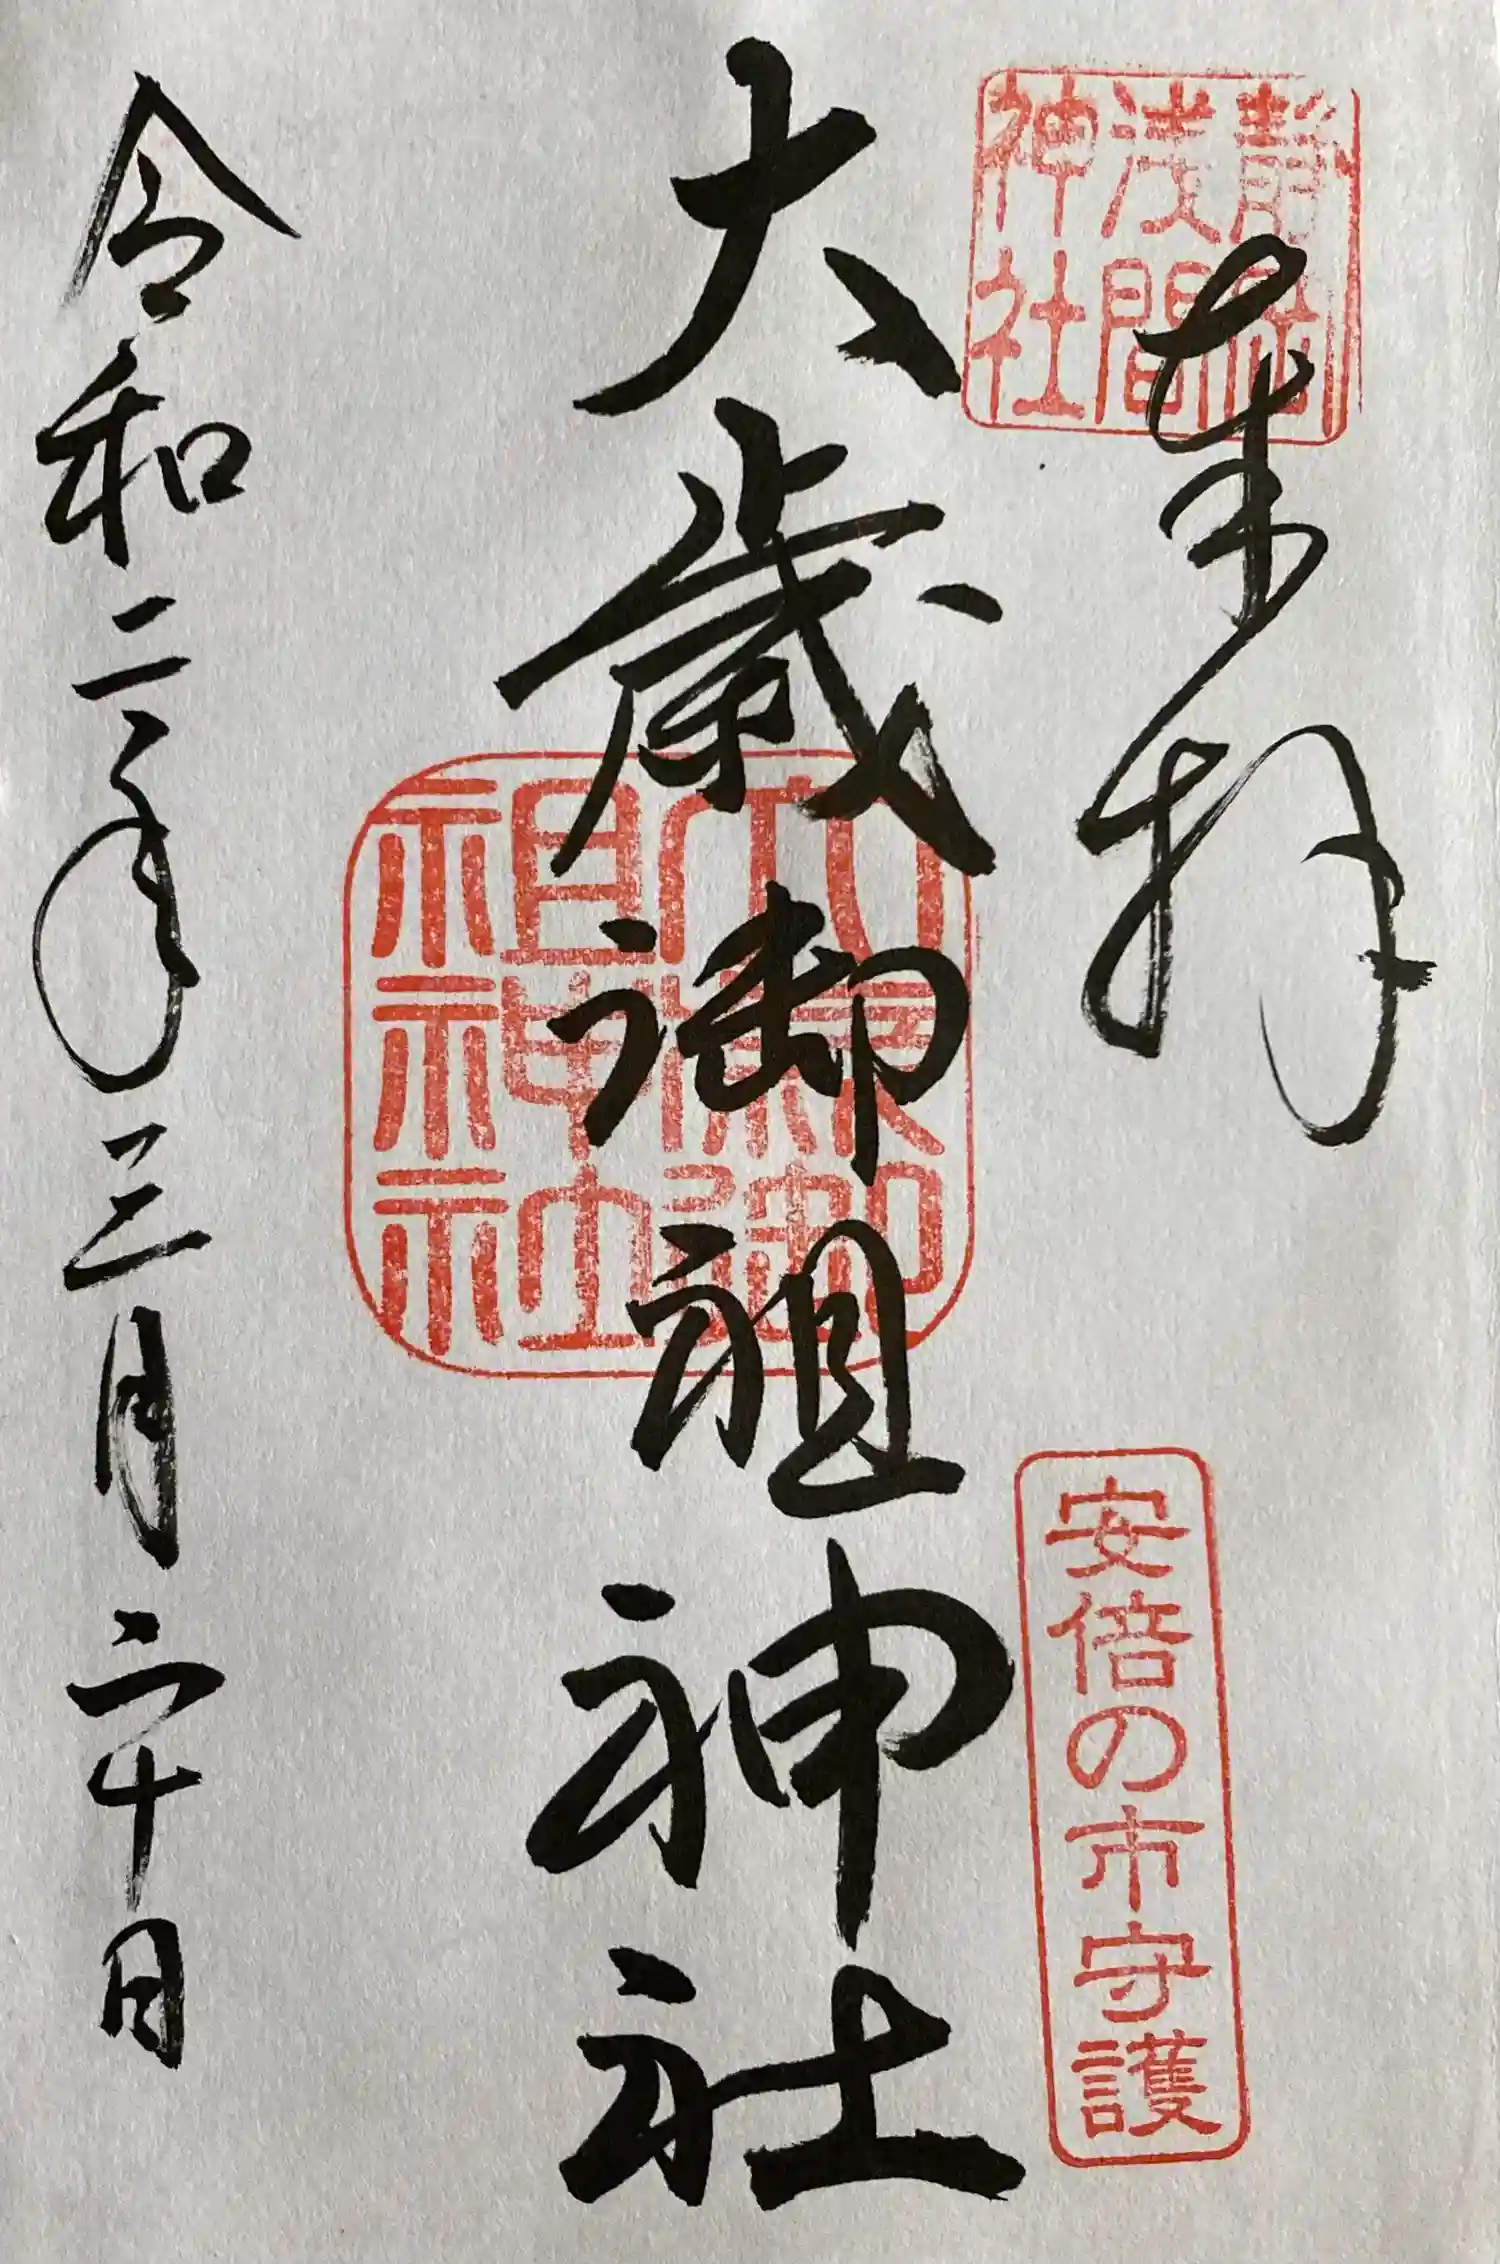 静岡
浅間
神社
奉拝
安倍の市守護
大歳御祖神社
大歳御
祖神社
令和二年三月二十日